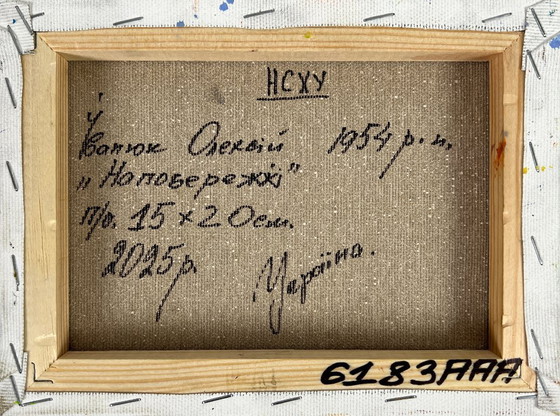 НСХУ
Іванюк Олексій 1954 р.н.
„Напобережжі"
п/о. 15×20см.
2025р.
Україна.
6183AAA